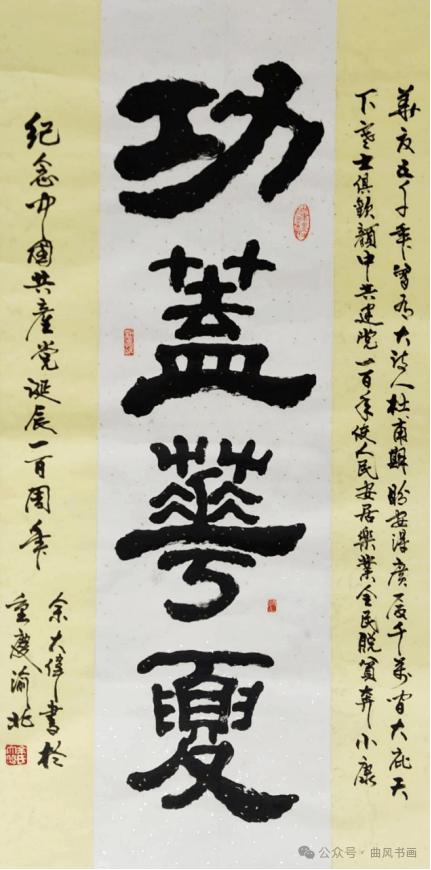 功蓋華夏
華夏五千年曾有大詩人杜甫期盼安得廣厦千萬間大庇天
下寒士俱歡顏中共建党一百年使人民安居樂業全民脱貧奔小康
纪念中國共產党诞辰一百周年
余大偉書於
重慶渝北
公众号·曲风书画